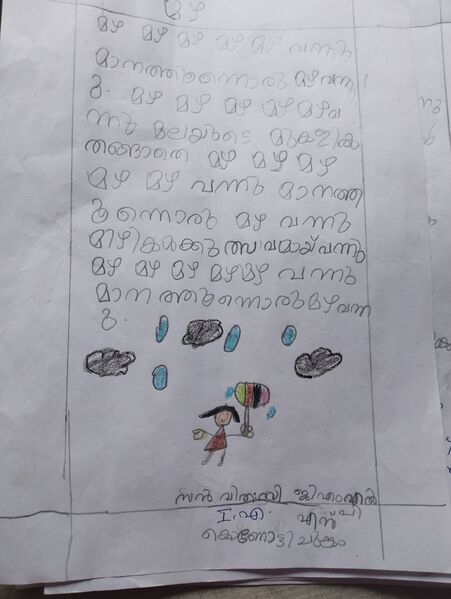 മഴ
മഴ മഴ മഴ മഴ മഴ വന്നു
മാനത്തുന്നൊരു മഴ വന്നു
മഴ മഴ മഴ മഴ മഴ വ
ന്നു മലയുടെ മുകളിൽ
തങ്ങാതെ മഴ മഴ മഴ
മഴ മഴ വന്നു മാനത്ത
ുന്നൊരു മഴ വന്നു
മിഴികൾക്കുത്സവമായ് വന്നു
മഴ മഴ മഴ മഴ മഴ വന്നു
മാനത്തുന്നൊരു മഴ വന്ന
ു.
സൻ ജിഎംഎൽ
I.എ. പി
എസ്